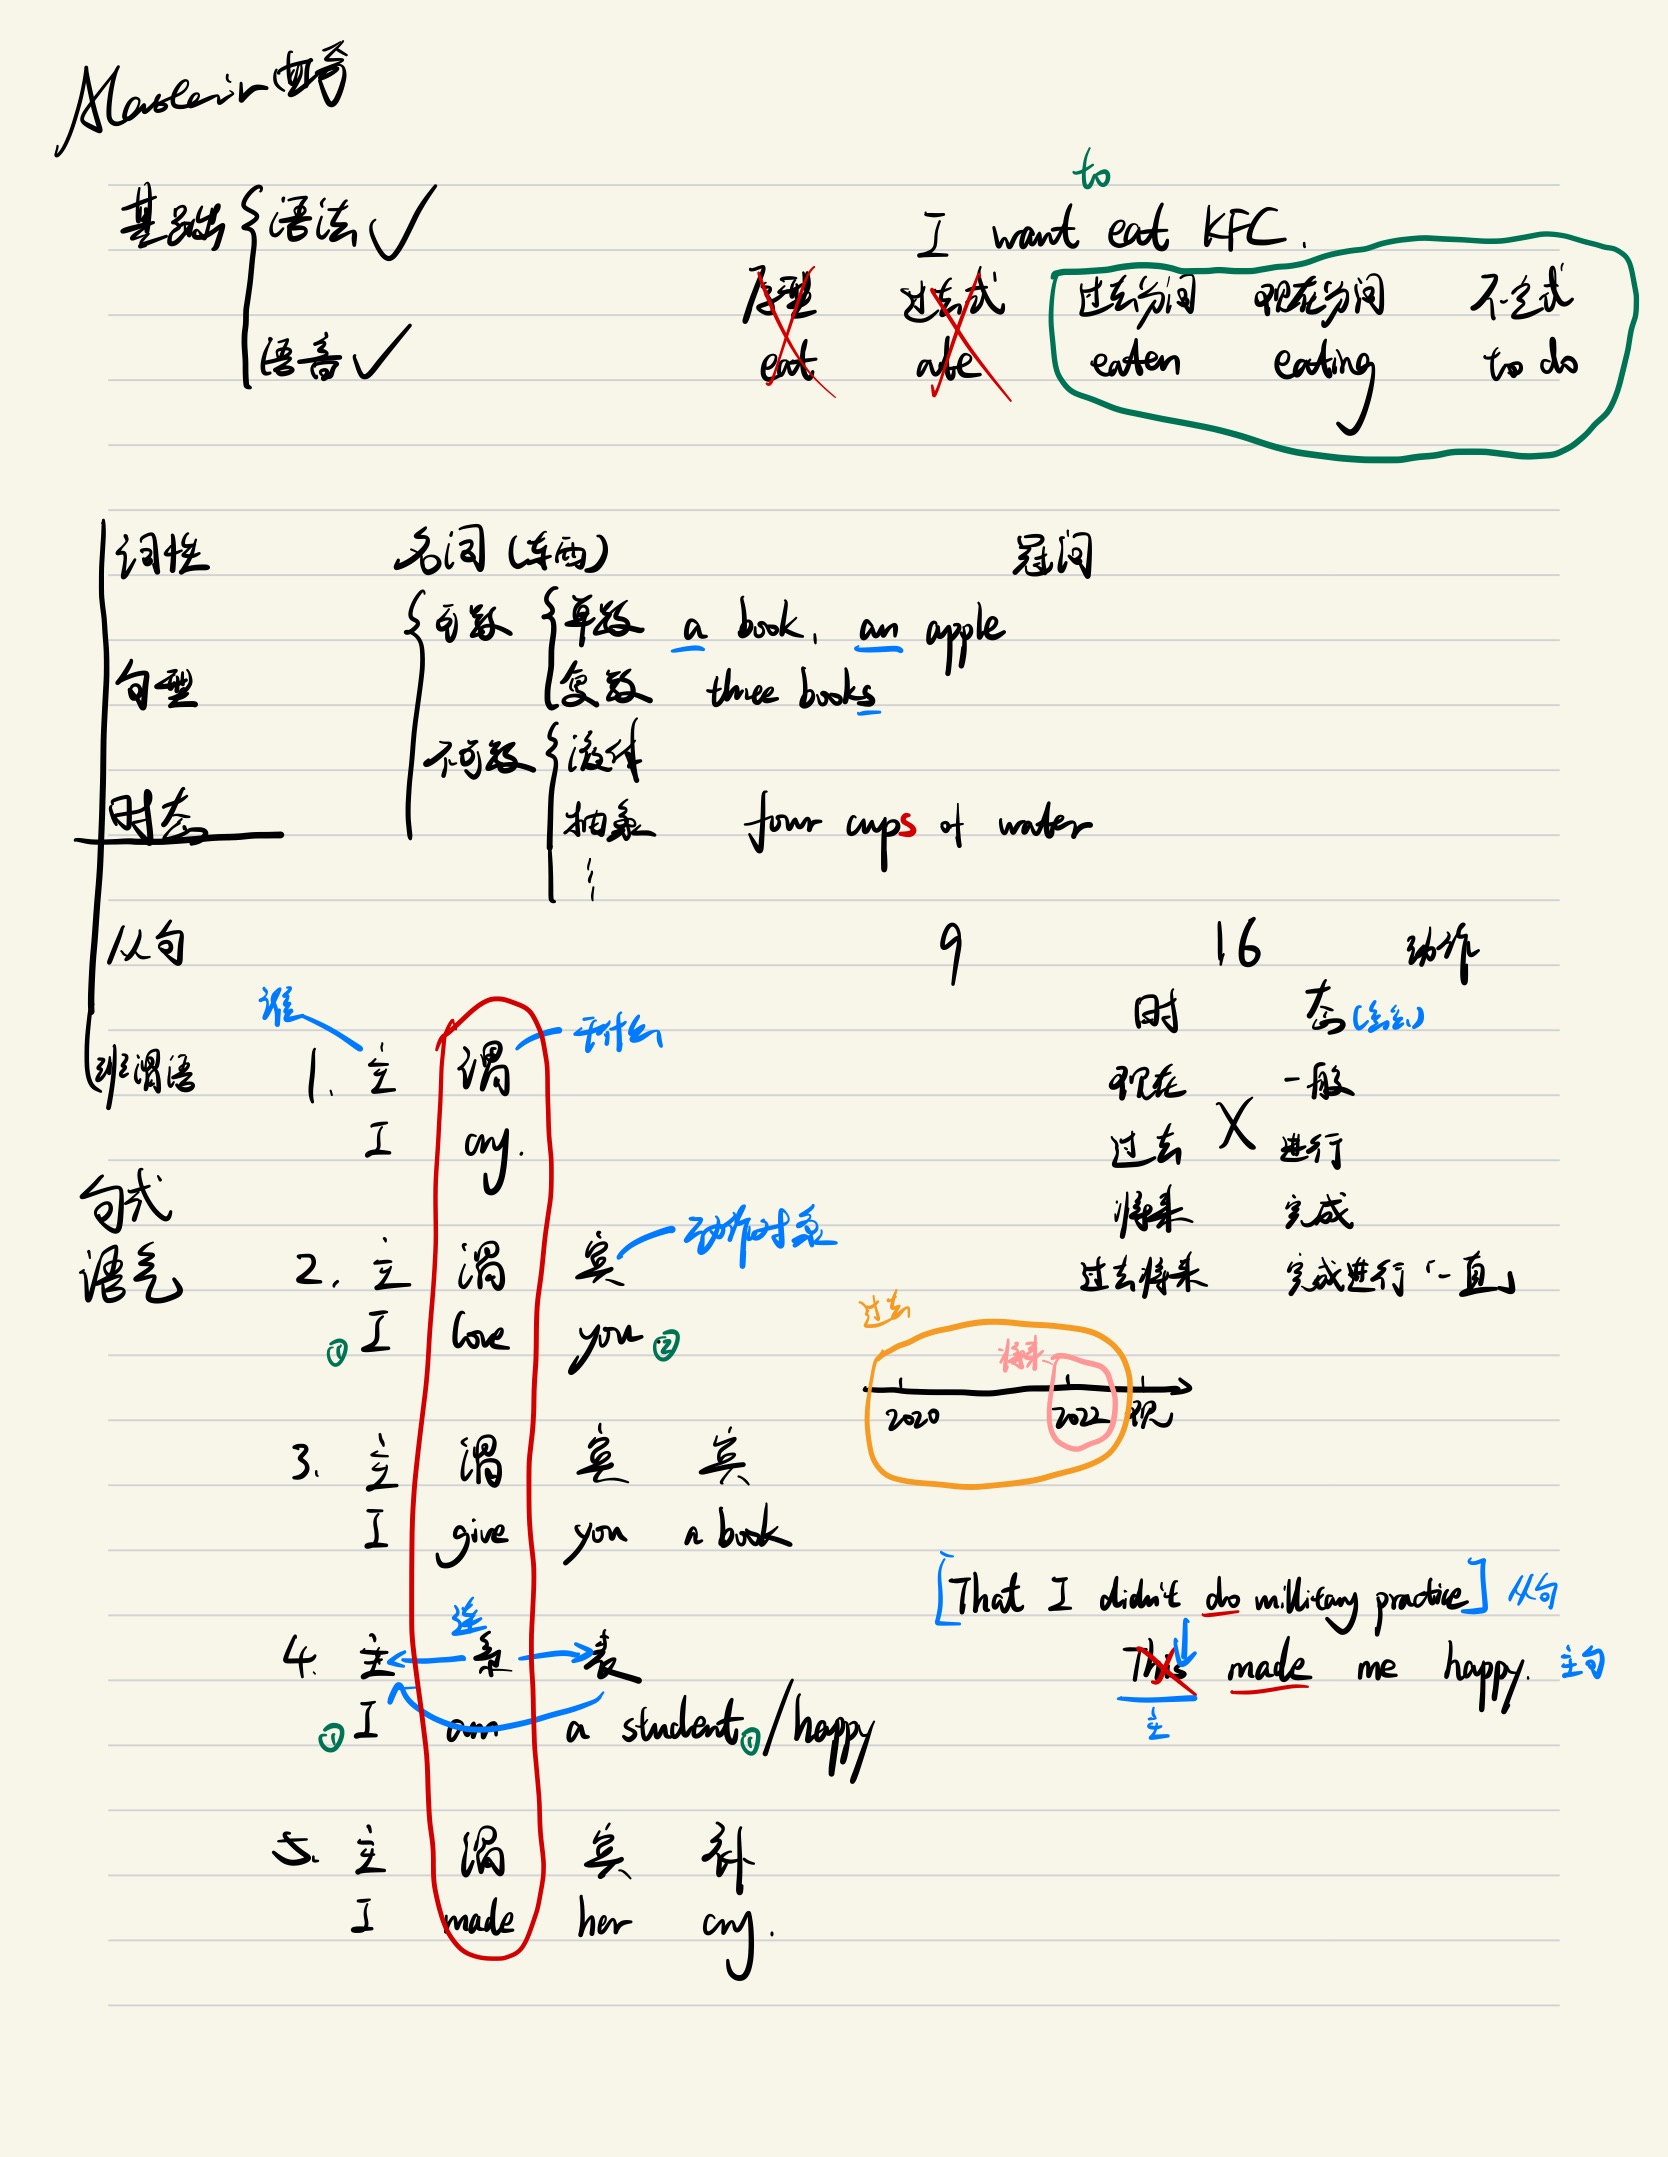 to
基础 语法
I want eat KFC.
原型 过去式 过去分词 现在分词 不定式
语音
eat ate eaten eating to do
词性 名词(东西) 冠词
可数 单数 a book, an apple
句型 复数 three books
不可数 液体
时态 抽象 four cups of water
从句 9 16 动作
谁 时 态
主 谓 干什么
非谓语 1. 主 谓 现在 一般
I cry. 过去 X 进行
句式 将来 完成
语气 2. 主 谓 宾 动作对象 过去将来 完成进行「一直」
过去
① I love you ② 将来
2020 2022 现
3. 主 谓 宾 宾
I give you a book
[That I didn't do millitary practice] 从句
连
4. 主 系 表 This made me happy. 主句
① I am a student ① / happy 主
5. 主 谓 宾 补
I made her cry.